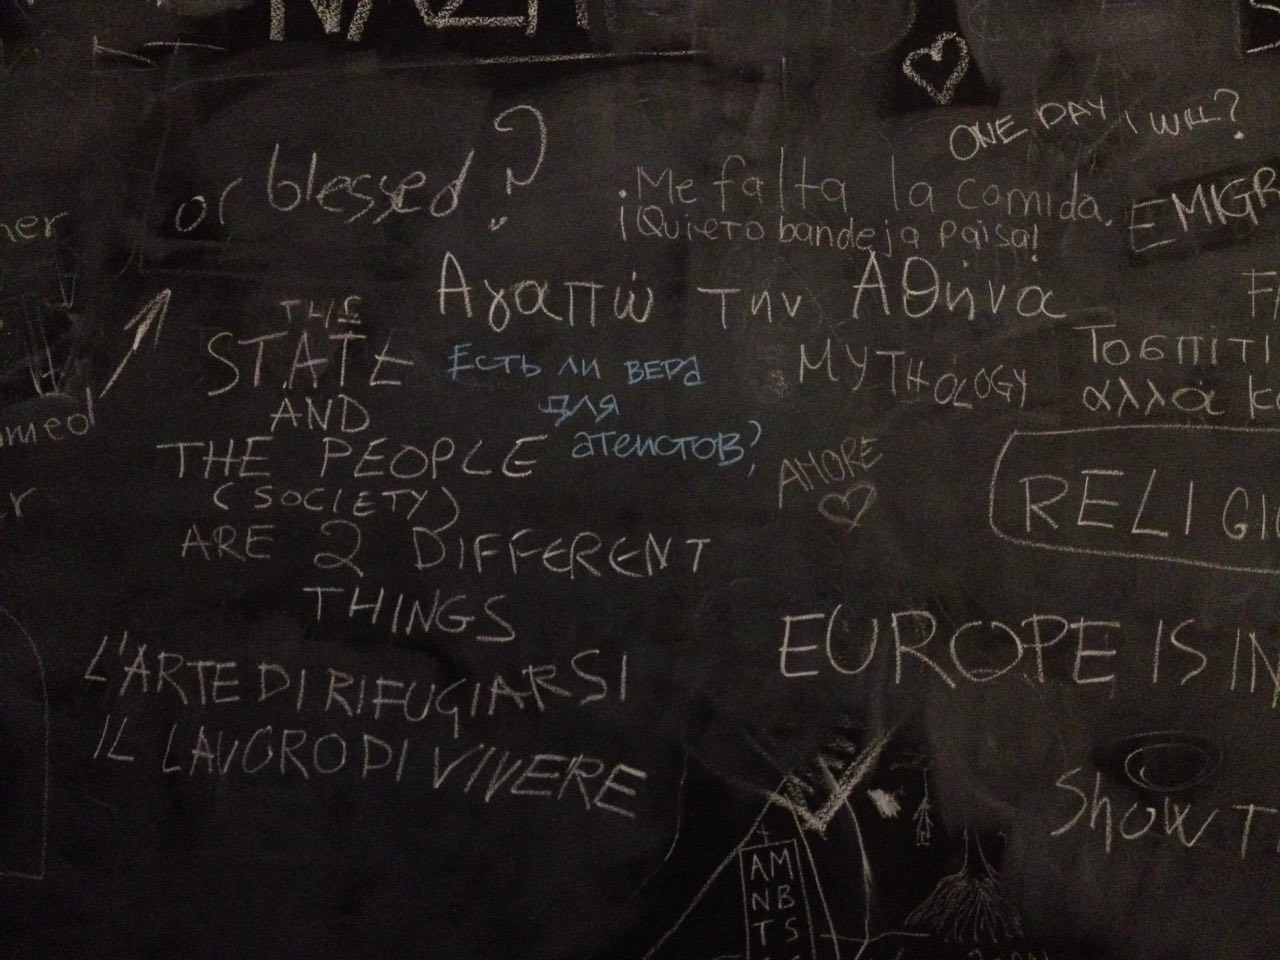 or blessed?
ONE DAY I WILL?
¡Me falta la comida.
¡Quieto bandeja paisa!
EMIGR
Αγαπώ την Αθήνα
THE
STATE
AND
THE PEOPLE
(SOCIETY)
ARE 2 DIFFERENT
THINGS
Есть ли вера
для
атеистов?
MYTHOLOGY
Το σπίτι
αλλά
AMORE
RELIGI
EUROPE IS IN
L'ARTE DI RIFUGIARSI
IL LAVORO DI VIVERE
Show T
AM
NB
TS